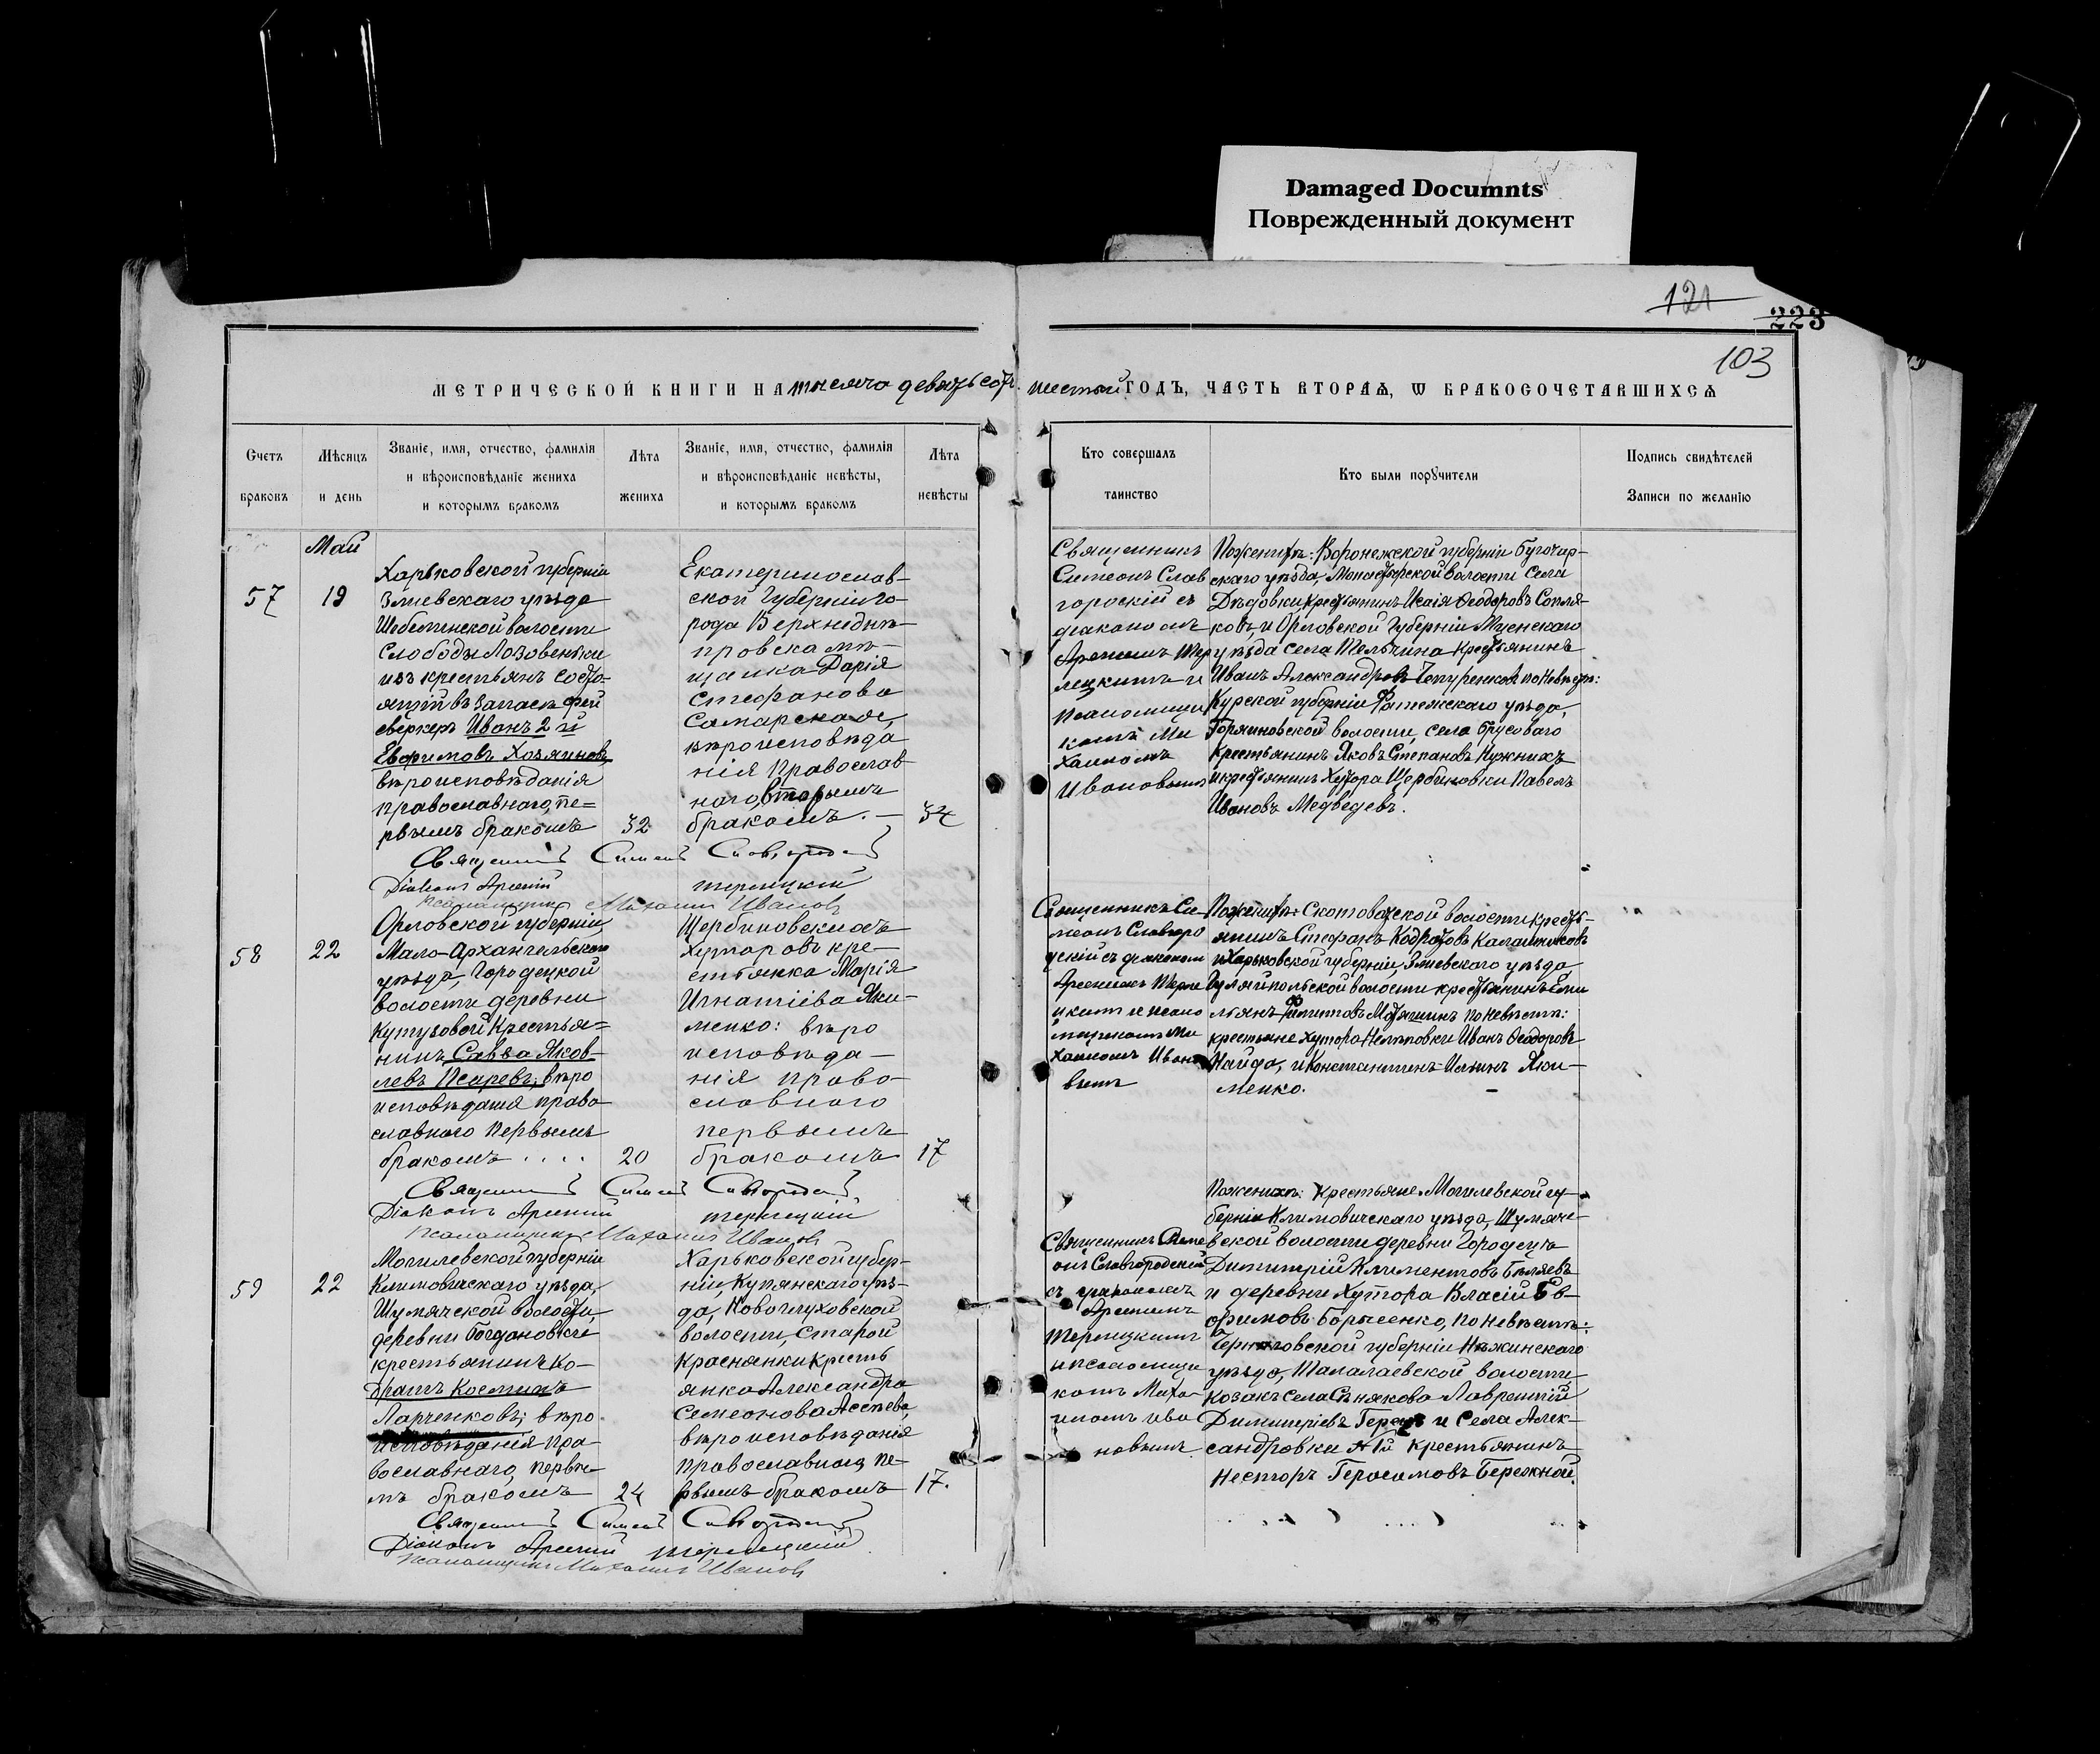 Damaged Documnts
Поврежденный документ
121
223
103
МЕТРИЧЕСКОЙ КНИГИ НА тысяча девятьсот шестый ГОДЪ, ЧАСТЬ ВТОРАЯ, Ѡ БРАКОСОЧЕТАВШИХСЯ
Счетъ
браковъ
Мѣсяцъ
и день
Званіе, имя, отчество, фамилія
и вѣроисповѣданіе жениха
и которымъ бракомъ
Лѣта
жениха
Званіе, имя, отчество, фамилія
и вѣроисповѣданіе невѣсты,
и которымъ бракомъ
Лѣта
невѣсты
Кто совершалъ
таинство
Кто были порꙋчители
Подпись свидѣтелей
Записи по желанію
Май
57
19
Харьковской губерніи
Зміевскаго уѣзда
волости
Слободы Лозовеньки
изъ крестьянъ состо-
ящій въ запасѣ фей
ерверкеръ Иванъ 2й
Евфимовъ Хозяиновъ
вѣроисповѣданія
православнаго, пе=
рвымъ бракомъ
32
Екатеринослав-
ской Губерніи го-
рода Верхнеднѣ-
провска мѣ-
щанка Дарія
Стефанова
Самарская,
вѣроисповѣда
нія Православ
наго, вторымъ
бракомъ. —
34
Священникъ
Симеонъ Слав
городскій съ
діакономъ
Арсеніемъ Тер
лецкимъ и
псаломщи
комъ Ми
хаиломъ
Ивановымъ
По женихѣ: Воронежской губерніи Бугочар-
скаго уѣзда, Монастырской волости села
Дѣдовки крестьянинъ Исаія Ѳеодоровъ Сопля-
ковъ, и Орловской Губерніи Мценскаго
уѣзда села Тельчина крестьянинъ
Иванъ Александровъ Чепуренковъ по невѣстѣ:
Курской губерніи Фатежскаго уѣзда,
волости, села Брусоваго
крестьянинъ Яковъ Степановъ Нужныхъ
и крестьянинъ Хутора Щербиновки Павелъ
Ивановъ Медведевъ.
Священникъ Симеонъ Славгородскій
Діаконъ Арсеній Терлецкій
Псаломщикъ Михаилъ Ивановъ
58
22
Орловской губерніи
Мало-Архангельскаго
уѣзда, Городецкой
волости деревни
Кутузовой Крестья=
нинъ Савва Яков-
левъ Псаревъ, вѣро
исповѣданія право
славнаго первымъ
бракомъ . . . .
20
Щербиновскихъ
Хуторовъ кре-
стьянка Марія
Игнатіева Яки-
менко: вѣро
исповѣда-
нія право-
славнаго
первымъ
бракомъ
17
Священникъ Си-
меонъ Славгоро
дскій съ діакономъ
Арсеніемъ Терле
цкимъ и псало
мщикомъ Ми
хаиломъ Ивано
вымъ
По женихѣ: Скотоватской волости кресть-
янинъ Стефанъ Кодратовъ Калашниковъ
и Харьковской губерніи, Зміевскаго уѣзда
Гуляйпольской волости крестьянинъ Еми
льянъ Филипповъ Мотяшинъ по невѣстѣ:
крестьяне Хутора Нелѣповки Иванъ Ѳеодоровъ
Найда, и Константинъ Ильинъ Яки-
менко.
Священникъ Симеонъ Славгородскій
Діаконъ Арсеній Терлецкій
Псаломщикъ Михаилъ Ивановъ
59
22
Могилевской губерніи
Климовичскаго уѣзда,
Шумячской волости,
деревни Богдановки
крестьянинъ Ко-
дратъ Косминъ
Ларченковъ; вѣро
исповѣданія пра-
вославнаго, первы-
мъ бракомъ
24
Харьковской губер-
ніи, Купянскаго уѣз-
да, Новоглуховской
волости, Старой
Краснянки кресть
янка Александра
Семеонова Асѣева,
вѣроисповѣданія
православнаго, пе-
рвымъ бракомъ
17.
Священникъ Симе
онъ Славгородскій
съ діакономъ
Арсеніемъ
Терлецкимъ
и псаломщи
комъ Миха-
иломъ Ива
новымъ
По женихѣ: крестьяне Могилевской гу-
берніи Климовичскаго уѣзда, Шумяче-
вской волости деревни Городецъ
Димитрій Климентовъ Бѣляевъ
и деревни Хутора Власій Ев-
фимовъ Борисенко, по невѣстѣ:
Черниговской губерніи Нѣжинскаго
уѣзда, Талалаевской волости,
козакъ села Сѣнякова Лаврентій
Димитріевъ Герецъ и Села Алек-
сандровки №1й крестьянинъ
Несторъ Герасимовъ Бережной.
Священникъ Симеонъ Славгородскій
Діаконъ Арсеній Терлецкій
Псаломщикъ Михаилъ Ивановъ